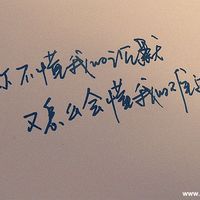 你不懂我的沉默
又怎么会懂我的难过
www.